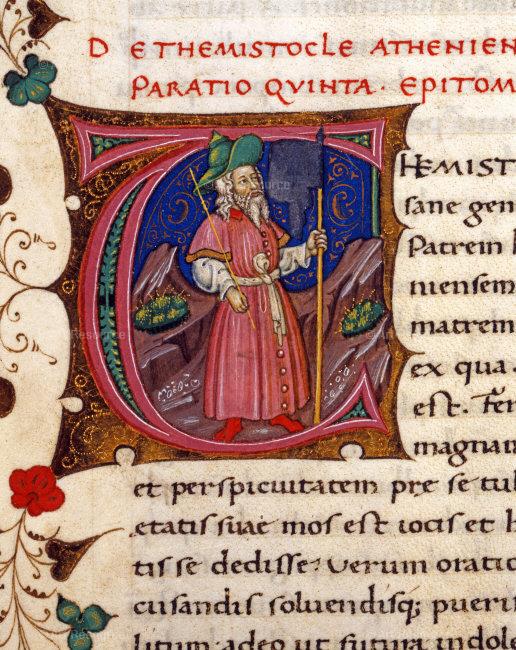 DE THEMISTOCLE ATHENIEN
PARATIO QVINTA · EPITOM
HEMIST
sane gen
Patrem
niensem
matrem
ex qua.
est. Fer
magnam
et perspicuitatem pre se tul
etatis suae mos est iocis et h
tis se dedisse: Verum oratio
cusandis soluendisq; pueri
litum: adeo ut futura indole